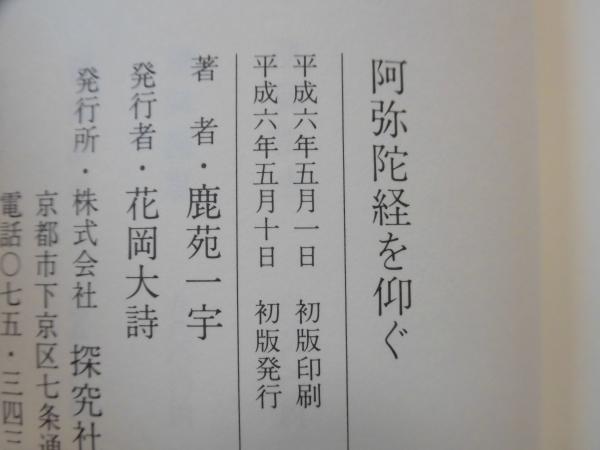 阿弥陀経を仰ぐ
平成六年五月一日 初版印刷
平成六年五月十日 初版発行
著者・鹿苑一宇
発行者・花岡大詩
発行所・株式会社 探究社
京都市下京区七条通
電話〇七五・三四三